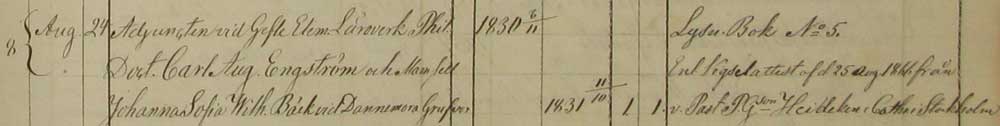 8 { Aug 24 Adjunkten vid Gefle Elem. Läroverk, Phil. 1830 6/11 Lysn. Bok No 5.
Doct. Carl Aug. Engström och Mamsell Enl Vigselattest af d 25 Aug 1866 från
Johanna Sofia Wilh. Bäck vid Dannemora Grufvor 1831 11/10 1 1. v. Past. P. Gson i Cathr: Stockholm